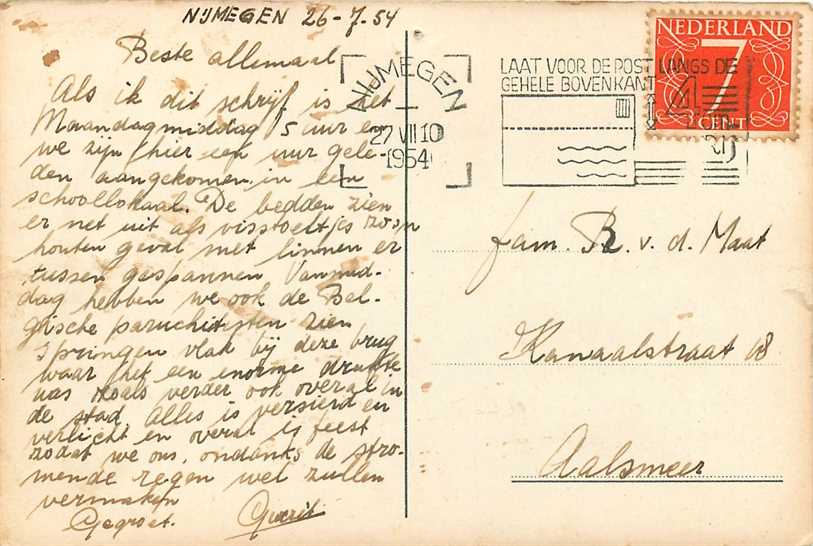 NIJMEGEN 26-7-54
Beste allemaal
Als ik dit schrijf is het
Maandagmiddag 5 uur en
we zijn hier een uur gele-
den aangekomen in een
schoollokaal. De bedden zien
er net uit als visstoeltjes zo'n
houten geval met linnen er
tussen gespannen Vanmid-
dag hebben we ook de Bel-
gische parachutisten zien
springen vlak bij deze brug
waar het een enorme drukte
was zoals verder ook overal in
de stad. Alles is versierd en
verlicht en overal is feest
zodat we ons, ondanks de stro-
mende regen wel zullen
vermaken
Gegroet. Gerrit
NIJMEGEN
27 VII 10
1954
LAAT VOOR DE POST LANGS DE
GEHELE BOVENKANT
VRIJ
NEDERLAND
7
CENT
fam. B. v. d. Maat
Kanaalstraat 18
Aalsmeer